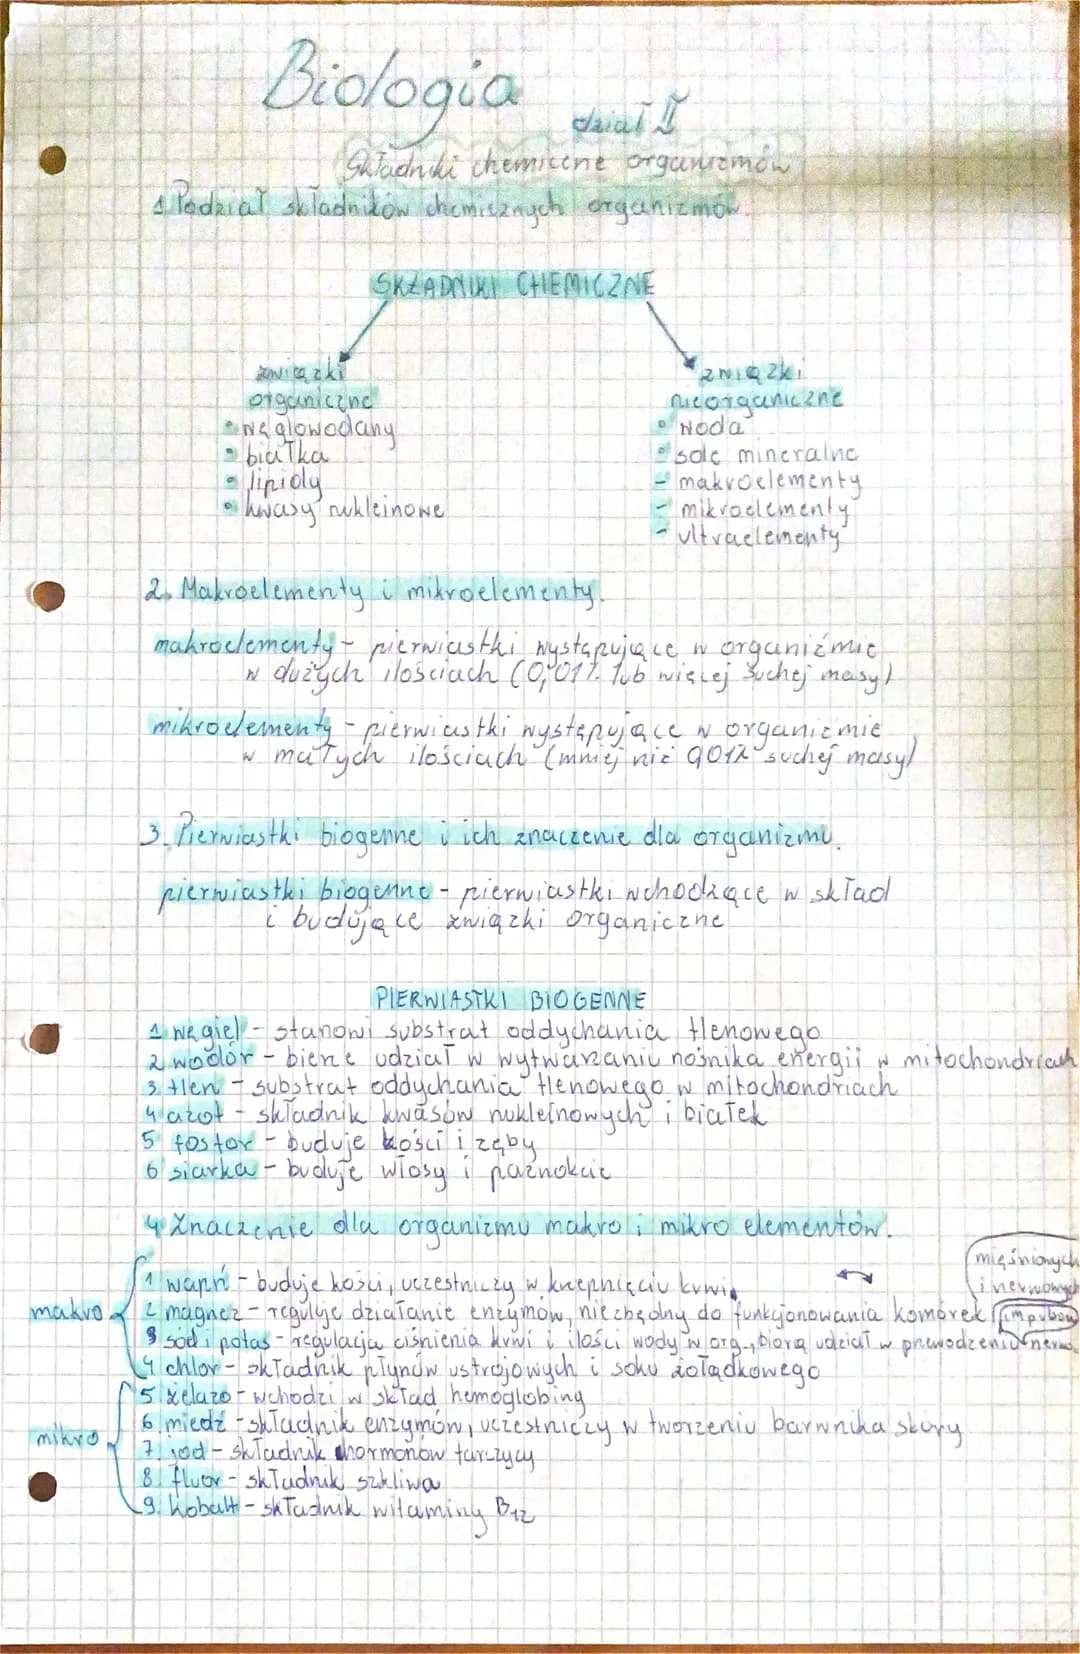 Biologia
dział II
Składniki chemiczne organizmów
1. Podział składników chemicznych organizmów.
SKŁADNIKI CHEMICZNE
związki
organiczne
• węglowodany
• białka
• lipidy
• kwasy nukleinowe
związki
nieorganiczne
• woda
• sole mineralne
- makroelementy
- mikroelementy
- ultraelementy
2. Makroelementy i mikroelementy.
makroelementy - pierwiastki występujące w organiźmie
w dużych ilościach (0,01% lub więcej suchej masy)
mikroelementy - pierwiastki występujące w organizmie
w małych ilościach (mniej niż 0,01% suchej masy)
3. Pierwiastki biogenne i ich znaczenie dla organizmu.
pierwiastki biogenne - pierwiastki wchodzące w skład
i budujące związki organiczne
PIERWIASTKI BIOGENNE
1 węgiel - stanowi substrat oddychania tlenowego
2 wodór - bierze udział w wytwarzaniu nośnika energii w mitochondriach
3 tlen - substrat oddychania tlenowego w mitochondriach
4 azot - składnik kwasów nukleinowych i białek
5 fosfor - buduje kości i zęby
6 siarka - buduje włosy i paznokcie
4 Znaczenie dla organizmu makro i mikro elementów.
makro
1 wapń - buduje kości, uczestniczy w krzepnięciu krwi
mięśniowych
i nerwowych
2 magnez - reguluje działanie enzymów, niezbędny do funkcjonowania komórek
impulsów
3 sód i potas - regulacja ciśnienia krwi i ilości wody w org., biorą udział w przewodzeniu nerwo.
4 chlor - składnik płynów ustrojowych i soku żołądkowego
mikro
5 żelazo - wchodzi w skład hemoglobiny
6. miedź - składnik enzymów, uczestniczy w tworzeniu barwnika skóry
7. jod - składnik hormonów tarczycy
8. fluor - składnik szkliwa
9. kobalt - składnik witaminy B12